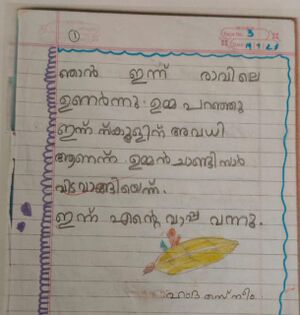 ①
3
ഞാൻ ഇന്ന് രാവിലെ
ഉണർന്നു. ഉമ്മ പറഞ്ഞു
ഇന്ന് സ്കൂളിന് അവധി
ആണെന്ന. ഉമ്മൻചാണ്ടിസാർ
വിടവാങ്ങിയെന്ന്.
ഇന്ന് എന്റെ വാപ്പ വന്നു.